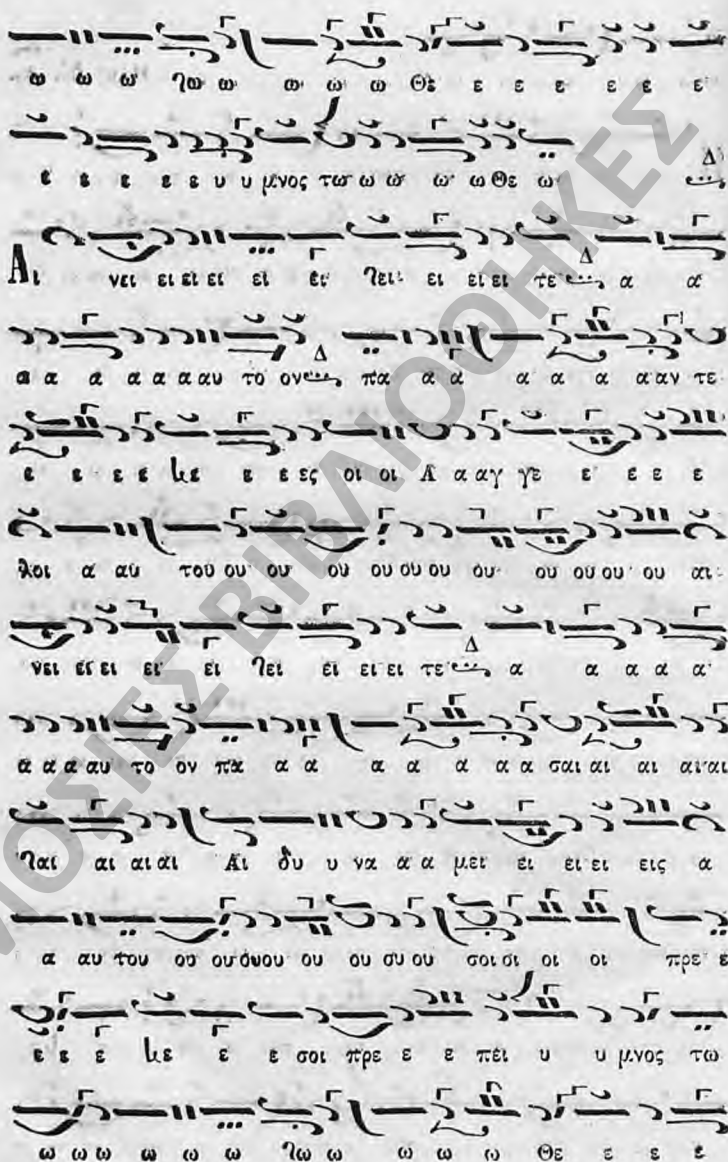 ω ω ω ϟω ω ω ω ω Θε ε ε ε ε ε ε
ε ε ε ε ε υ υ μνος τω ω ω ω ω Θε ω Δ
Αι νει ει ει ει ει ει ϟει ει ει ει τε Δ α α α
α α α α α α αυ το ον Δ παν α α α α α α αν τε
ε ε ε ε ϟε ε ε ες οι οι Α α αγ γε ε ε ε ε
λοι α αυ του ου ου ου ου ου ου ου ου ου ου ου αι
νει ει ει ει ει ϟει ει ει ει τε Δ α α α α α
α α α αυ το ον πα α α α α α α α σαι αι αι αι αι
ϟαι αι αι αι Αι δυ υ να α α μει ει ει ει εις α
α αυ του ου ου ου ου ου ου ου ου ου σοι οι οι οι πρε ε
ε ε ε ϟε ε ε σοι πρε ε ε πει υ υ μνος τω
ω ω ω ω ω ω ϟω ω ω ω ω Θε ε ε ε
ΜΟΣΙΕΣ ΒΙΒΛΙΟΘΗΚΕΣ